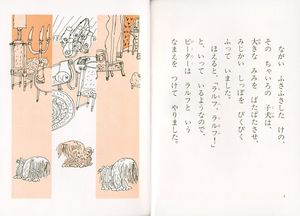 ながい ふさふさした けの、
その ちゃいろの 子犬は、
大きな みみを ぱたぱたさせ、
みじかい しっぽを ぴくぴく
ふって いました。
ほえると、「ラルフ、ラルフ！」
と、いって いるようなので、
ピーターは ラルフと いう
なまえを つけて やりました。